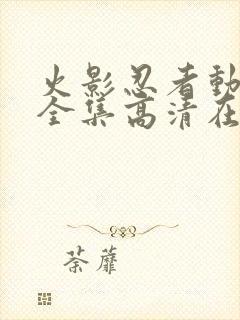 火影忍者動
全集高清在
荼蘼